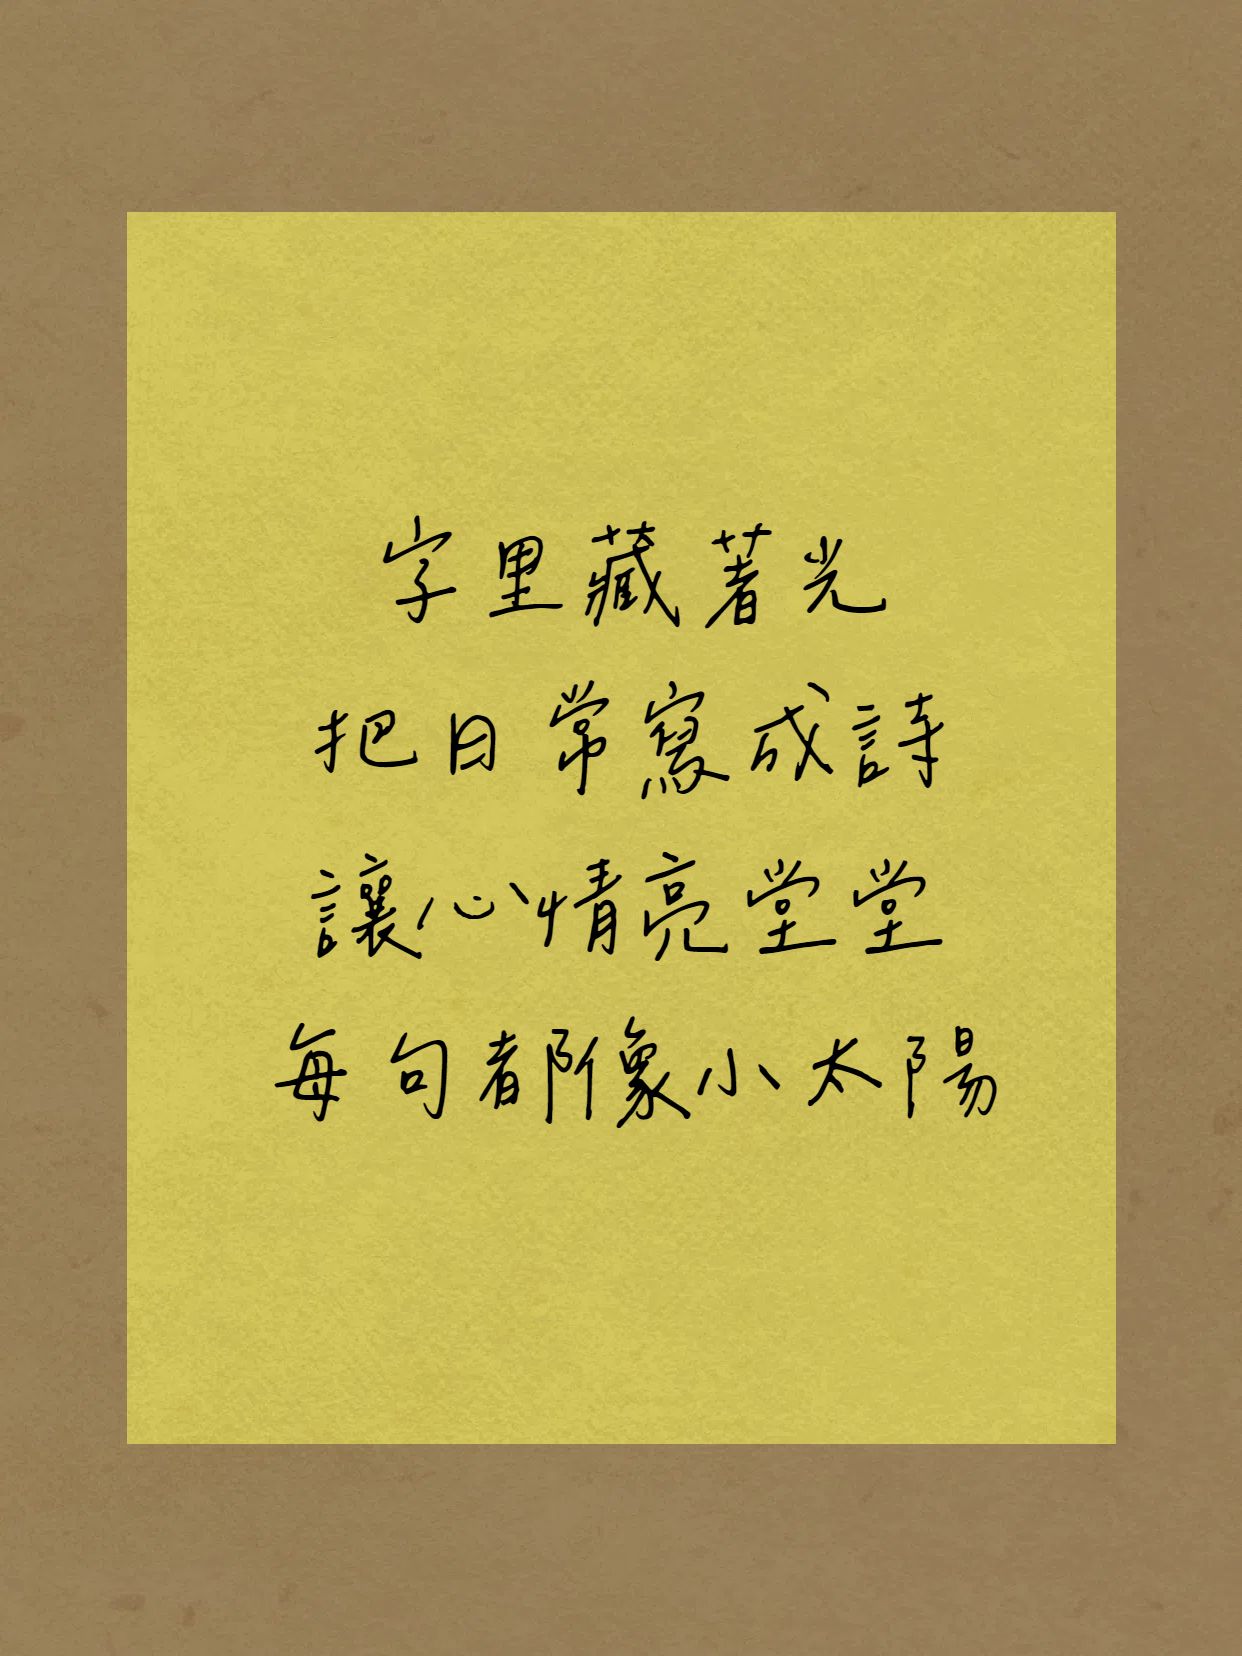 字里藏著光
把日常寫成詩
讓心情亮堂堂
每句都像小太陽